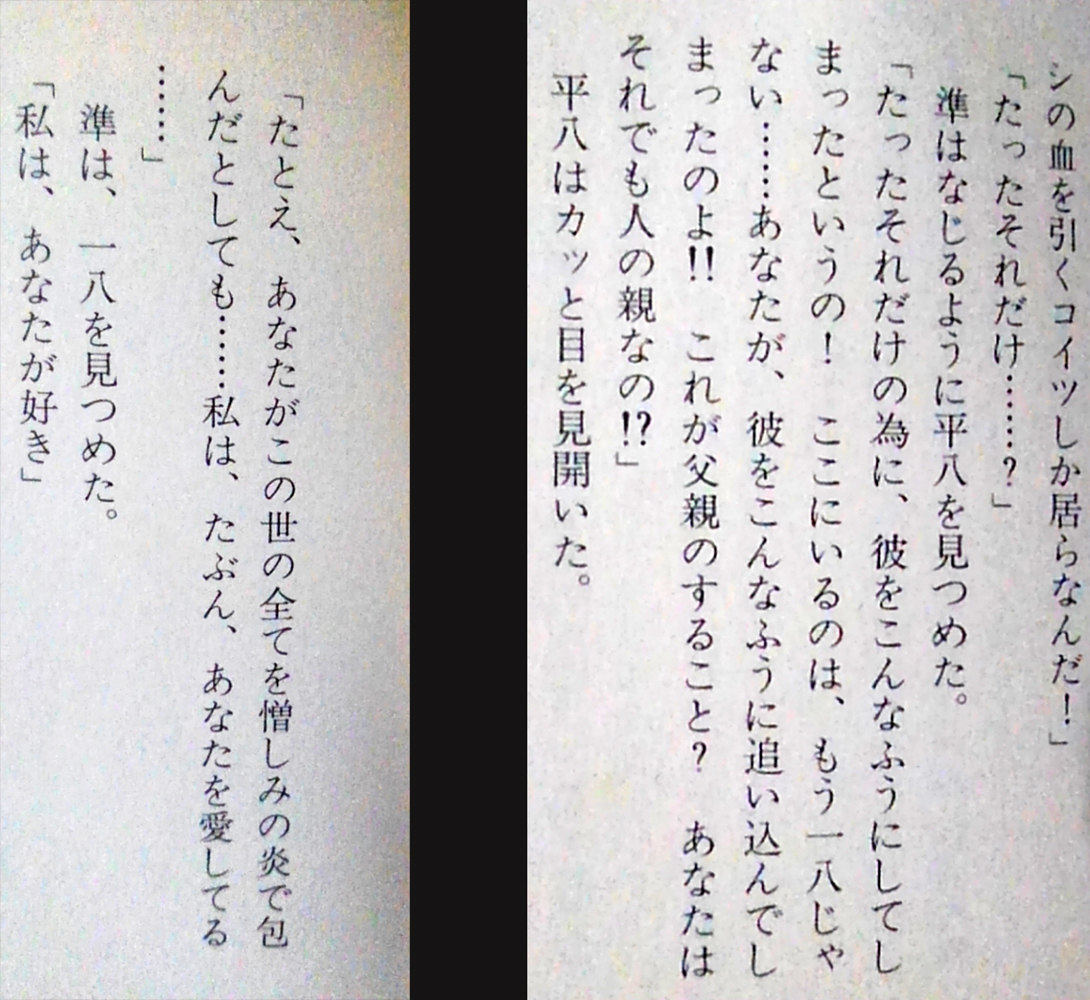 シの血を引くコイツしか居らなんだ！」
「たったそれだけ……？」
準はなじるように平八を見つめた。
「たったそれだけの為に、彼をこんなふうにしてし
まったというの！　ここにいるのは、もう一八じゃ
ない……あなたが、彼をこんなふうに追い込んでし
まったのよ!!　これが父親のすること？　あなたは
それでも人の親なの!?」
平八はカッと目を見開いた。
「たとえ、あなたがこの世の全てを憎しみの炎で包
んだとしても……私は、たぶん、あなたを愛してる
……」
準は、一八を見つめた。
「私は、あなたが好き」